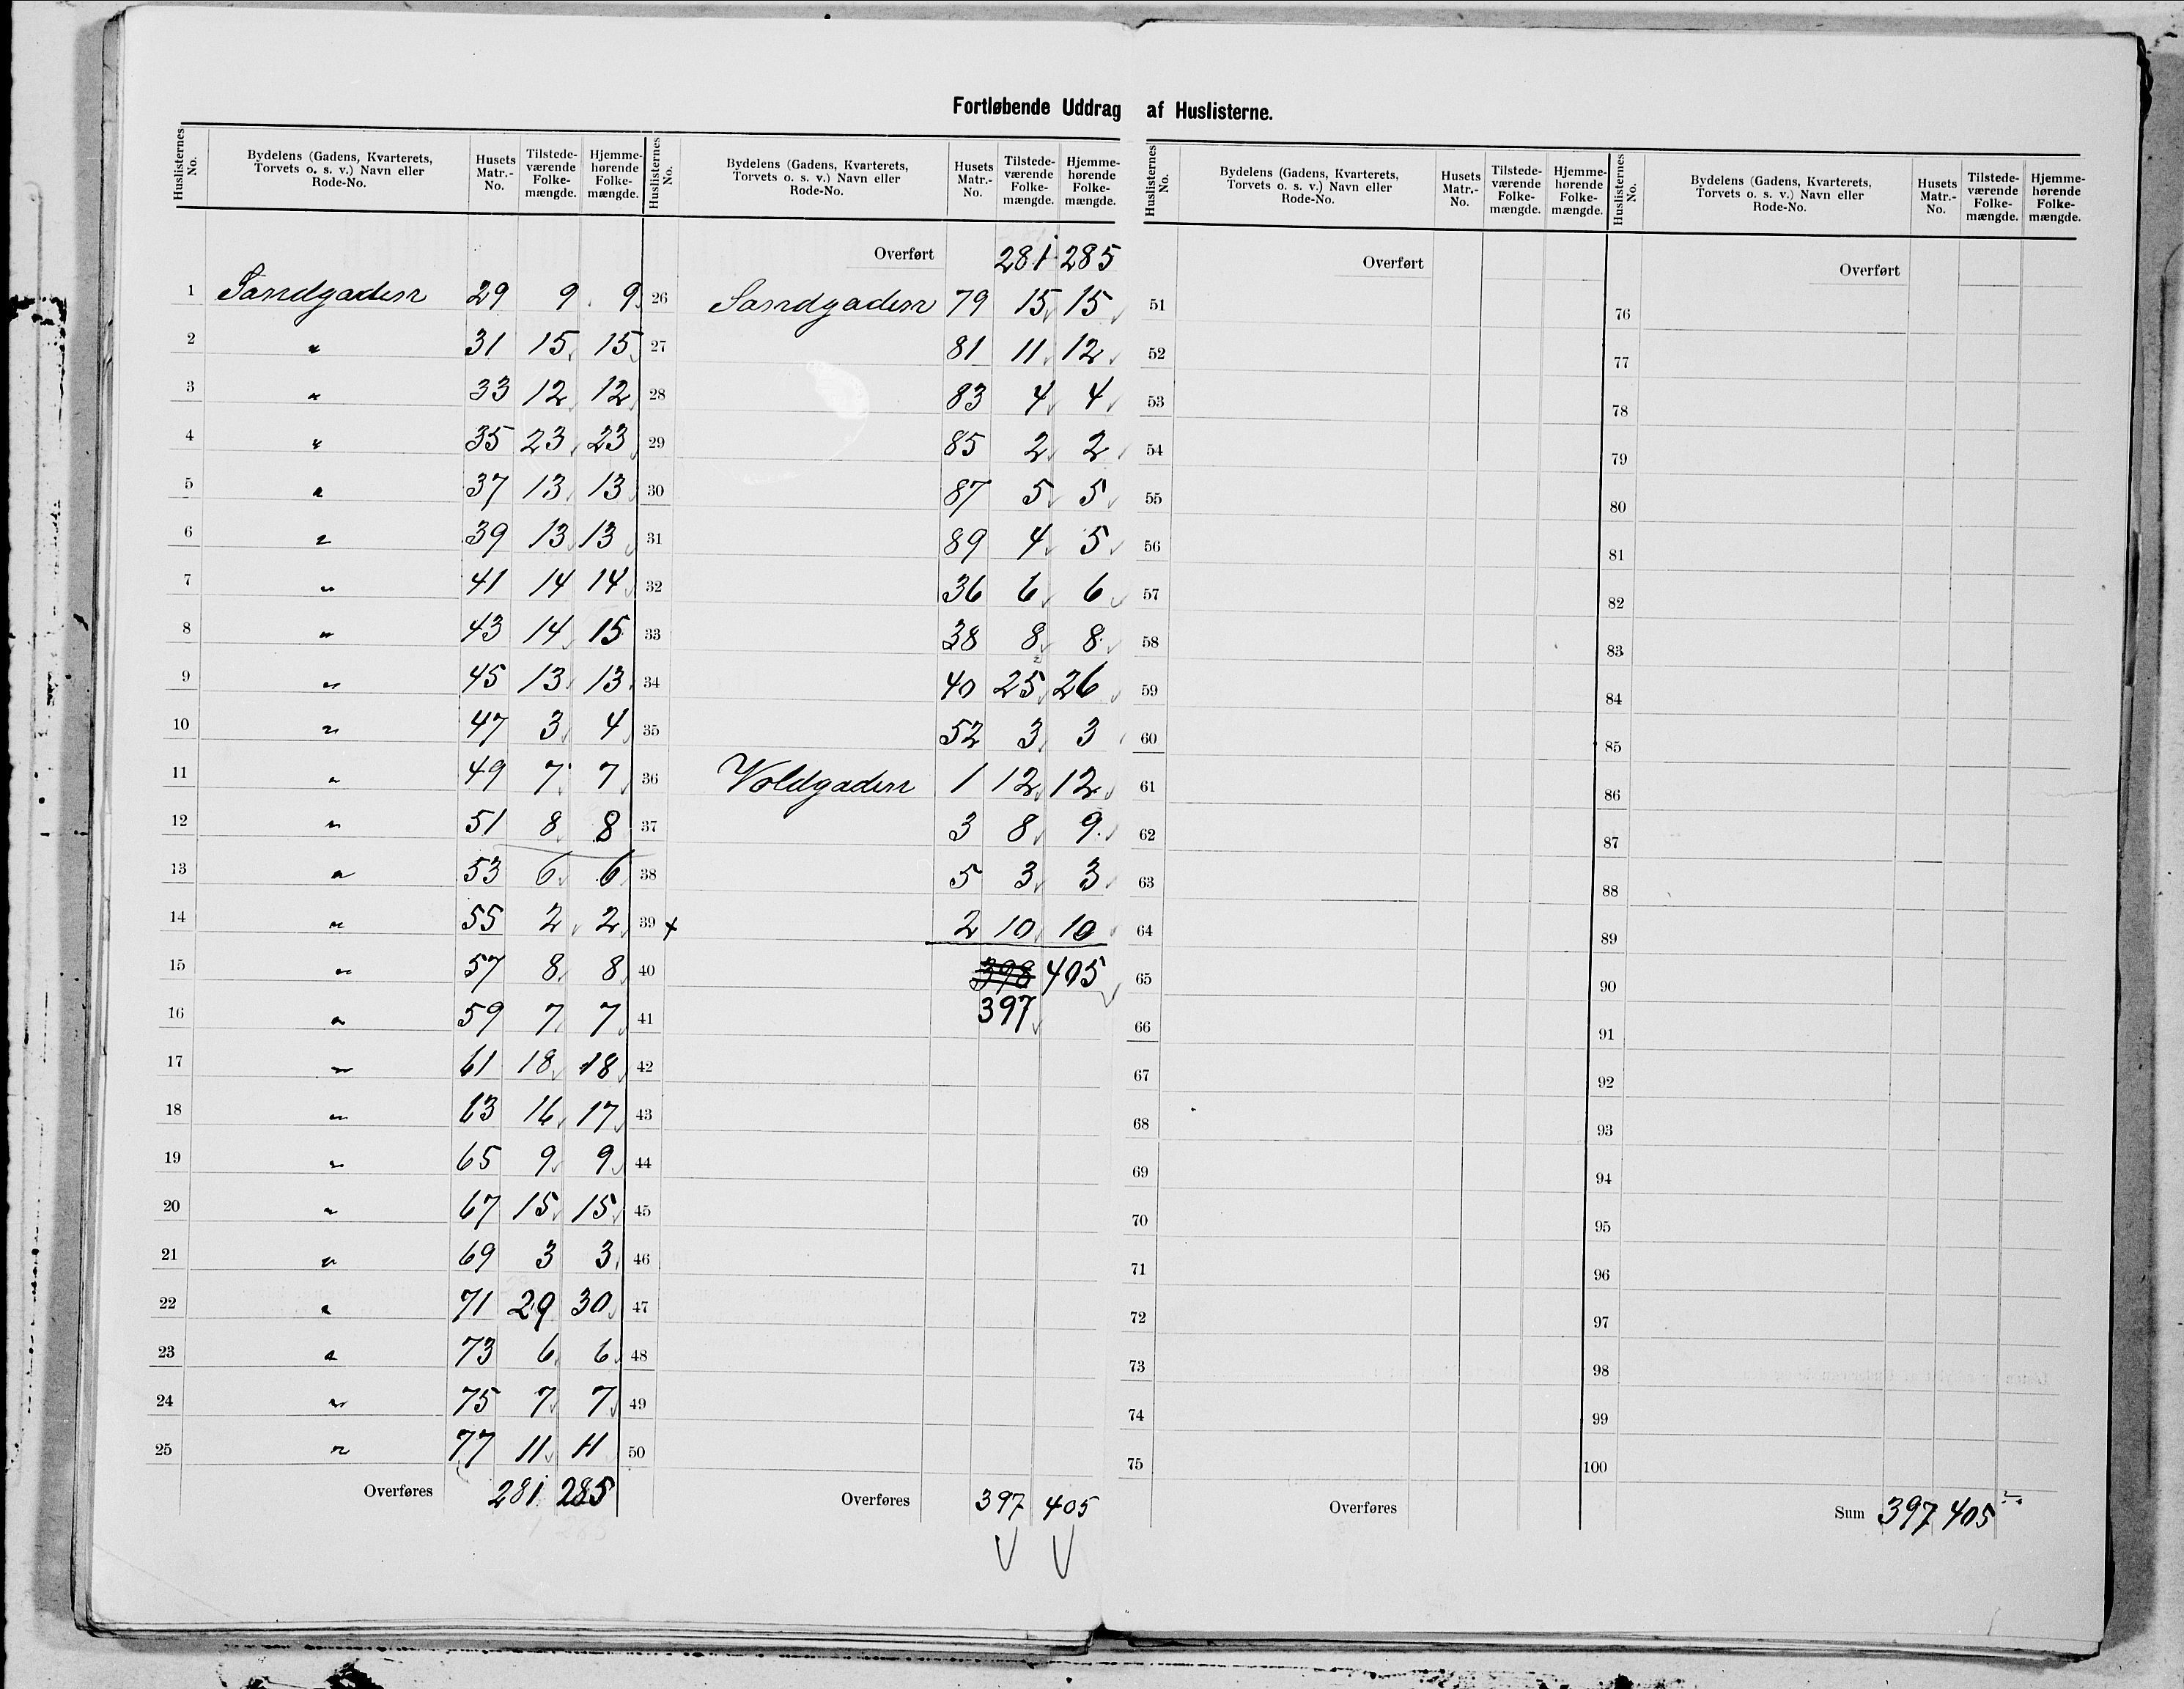 Fortløbende Uddrag af Huslisterne.
Huslisternes No. | Bydelens (Gadens, Kvarterets, Torvets o. s. v.) Navn eller Rode-No. | Husets Matr.-No. | Tilstede-værende Folke-mængde. | Hjemme-hørende Folke-mængde.
1 Sandgaden 29 9 9
2 " 31 15 15
3 " 33 12 12
4 " 35 23 23
5 " 37 13 13
6 " 39 13 13
7 " 41 14 14
8 " 43 14 15
9 " 45 13 13
10 " 47 3 4
11 " 49 7 7
12 " 51 8 8
13 " 53 6 6
14 " 55 2 2
15 " 57 8 8
16 " 59 7 7
17 " 61 18 18
18 " 63 16 17
19 " 65 9 9
20 " 67 15 15
21 " 69 3 3
22 " 71 29 30
23 " 73 6 6
24 " 75 7 7
25 " 77 11 11
Overføres 281 285
Huslisternes No. | Bydelens (Gadens, Kvarterets, Torvets o. s. v.) Navn eller Rode-No. | Husets Matr.-No. | Tilstede-værende Folke-mængde. | Hjemme-hørende Folke-mængde.
Overført 281 285
26 Sandgaden 79 15 15
27 81 11 12
28 83 4 4
29 85 2 2
30 87 5 5
31 89 4 5
32 36 6 6
33 38 8 8
34 40 25 26
35 52 3 3
36 Voldgaden 1 12 12
37 3 8 9
38 5 3 3
39 x 2 10 10
40 398 405
41 397
42
43
44
45
46
47
48
49
50
Overføres 397 405
Huslisternes No. | Bydelens (Gadens, Kvarterets, Torvets o. s. v.) Navn eller Rode-No. | Husets Matr.-No. | Tilstede-værende Folke-mængde. | Hjemme-hørende Folke-mængde.
Overført
51
52
53
54
55
56
57
58
59
60
61
62
63
64
65
66
67
68
69
70
71
72
73
74
75
Overføres
Huslisternes No. | Bydelens (Gadens, Kvarterets, Torvets o. s. v.) Navn eller Rode-No. | Husets Matr.-No. | Tilstede-værende Folke-mængde. | Hjemme-hørende Folke-mængde.
Overført
76
77
78
79
80
81
82
83
84
85
86
87
88
89
90
91
92
93
94
95
96
97
98
99
100
Sum 397 405